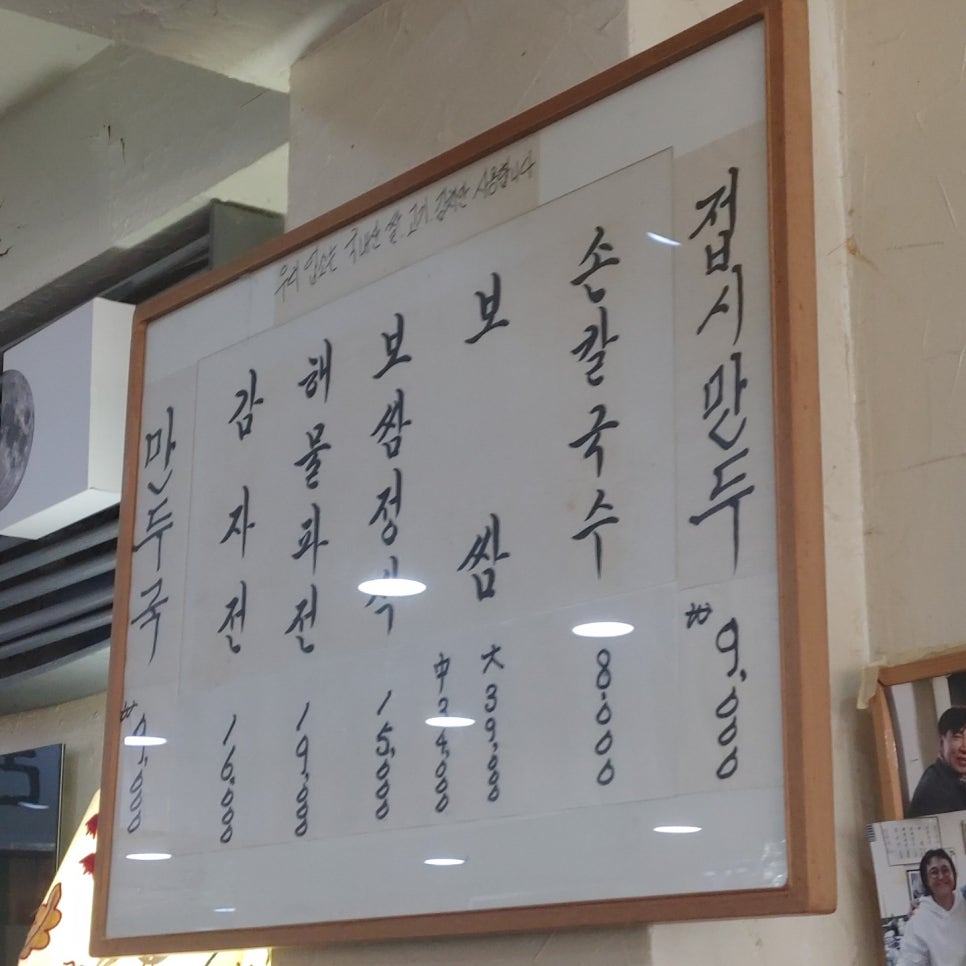 우리 업소는 국내산 쌀, 고기, 김치만 사용합니다
접시만두 ₩9,000
손칼국수 8,000
보쌈 大 39,000
中
보쌈정식 15,000
해물파전 19,000
감자전 16,000
만두국 ₩9,000